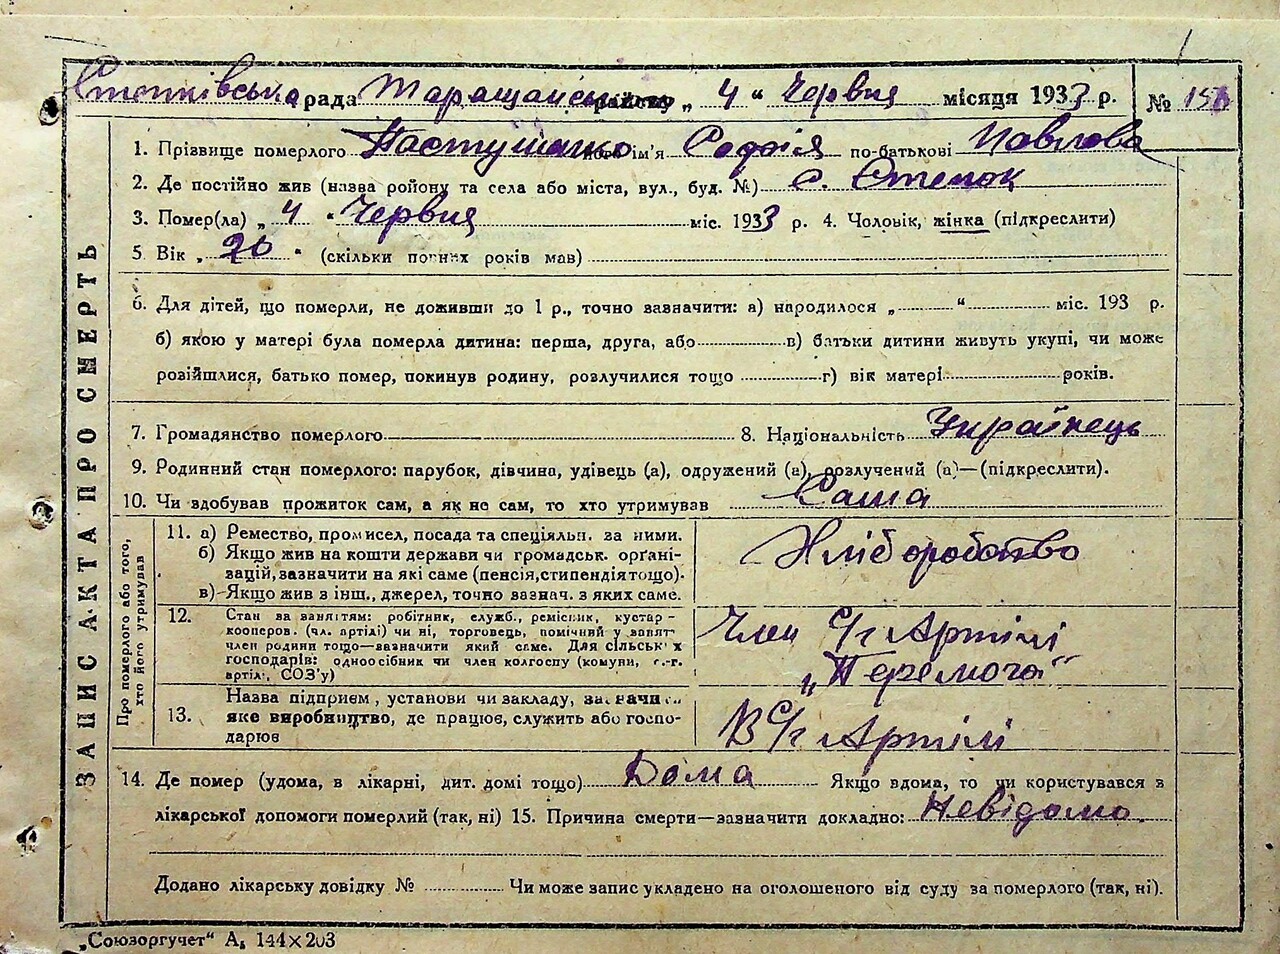 Степківська рада Таращанськ району „ 4 “ Червня місяця 1933 р. №
1. Прізвище померлого Пастушенко ім'я Софія по-батькові Павлова
2. Де постійно жив (назва ройону та села або міста, вул., буд. №) с. Степок
3. Помер(ла) „ 4 “ Червня міс. 1933 р. 4. Чоловік, жінка (підкреслити)
5 Вік „ 26 “ (скільки повних років мав)
6. Для дітей, що померли, не доживши до 1 р., точно зазначити: а) народилося „ “ міс. 193 р.
б) якою у матері була померла дитина: перша, друга, або в) батьки дитини живуть укупі, чи може
розійшлися, батько помер, покинув родину, розлучилися тощо г) вік матері років.
7. Громадянство померлого 8. Національність Українець
9. Родинний стан померлого: парубок, дівчина, удівець (а), одружений (а), розлучений (а)—(підкреслити).
10. Чи здобував прожиток сам, а як не сам, то хто утримував Сама
ЗАПИС АКТА ПРО СМЕРТЬ
Про померлого або того,
хто його утримував
11. а) Ремество, промисел, посада та спеціяльн. за ними.
б) Якщо жив на кошти держави чи громадськ. орґані-
зацій, зазначити на які саме (пенсія, стипендія тощо).
в) Якщо жив з інш., джерел, точно зазнач. з яких саме.
Хліборобство
12. Стан за занятям: робітник, служб., ремісник, кустар-
кооперов. (чл. артілі) чи ні, торговець, помічний у занят
член родини тощо—зазначити який саме. Для сільськ х
господарів: одноосібник чи член колгоспу (комуни, с.-г.
артілі, СОЗ'у)
Член С/г Артілі
„Перемога“
13. Назва підприєм, установи чи закладу, зазначи
яке виробництво, де працює, служить або госпо-
дарює
В С/г Артілі
14. Де помер (удома, в лікарні, дит. домі тощо) Дома Якщо вдома, то чи користувався з
лікарської допомоги померлий (так, ні) 15. Причина смерти—зазначити докладно: Невідомо.
Додано лікарську довідку № Чи може запис укладено на оголошеного від суду за померлого (так, ні).
„Союзоргучет“ А₅ 144×203